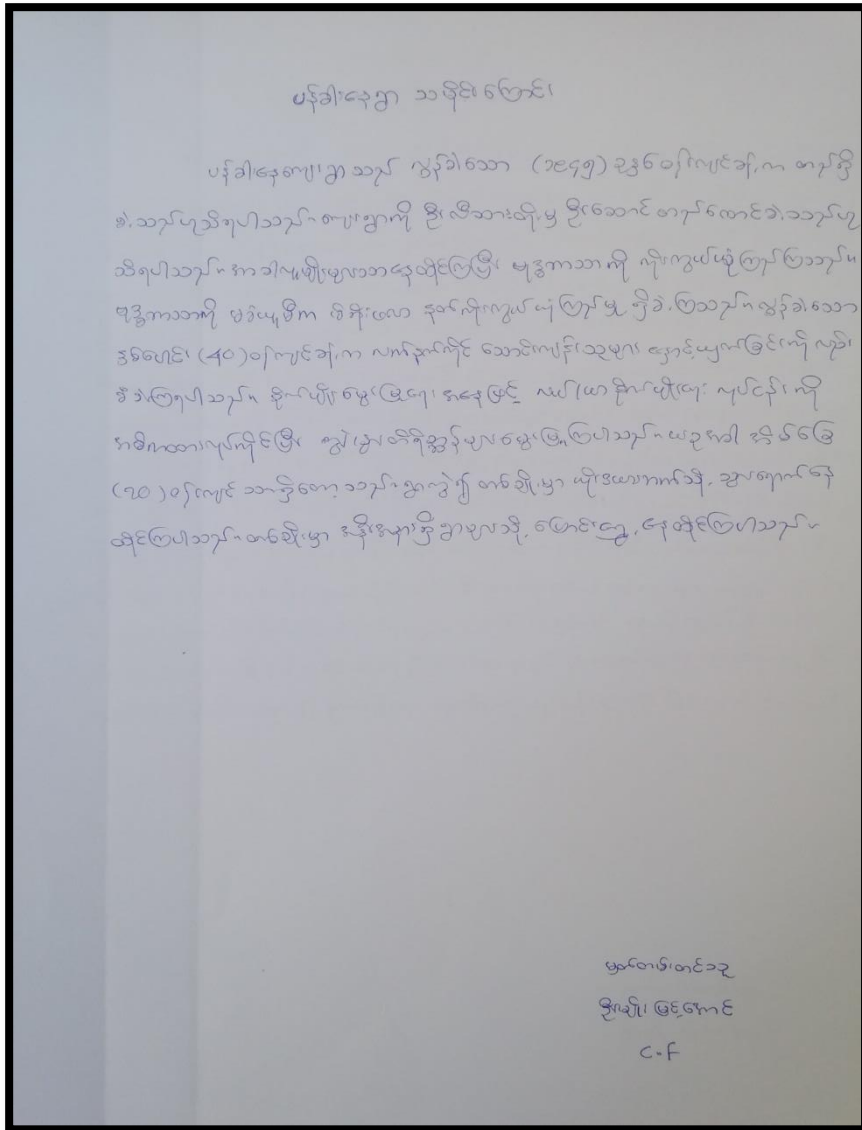 ပန်ခါးနေရွာ သမိုင်းကြောင်း
ပန်ခါးနေကျေးရွာ သည် လွန်ခဲ့သော (၁၉၄၅) ခုနှစ်ဝန်းကျင်ခန့်က တည်ရှိ
ခဲ့သည်ဟုသိရပါသည်။ ကျေးရွာကို ဦးလီသားထိုးမှ ဦးဆောင်တည်ထောင်ခဲ့သည်ဟု
သိရပါသည်။ အာခါလူမျိုးများသာနေထိုင်ကြပြီး ဗုဒ္ဓဘာသာကို ကိုးကွယ်ယုံကြည်ကြသည်။
ဗုဒ္ဓဘာသာကို မခံယူမီက မိရိုးဖလာ နတ်ကိုးကွယ်ယုံကြည်မှု ရှိခဲ့ကြသည်။ လွန်ခဲ့သော
နှစ်ပေါင်း (၄၀) ဝန်းကျင်ခန့်က လက်နက်ကိုင် သောင်းကျန်းသူများ နှောင့်ယှက်ခြင်းကို လည်း
ခံခဲ့ကြရပါသည်။ စိုက်ပျိုးမွေးမြူရေး အနေဖြင့် လယ်ယာစိုက်ပျိုးရေး လုပ်ငန်းကို
အဓိကထားလုပ်ကိုင်ပြီး ကျွဲ၊ နွား၊ တိရိစ္ဆာန်များမွေးမြူကြပါသည်။ ယခုအခါ အိမ်ခြေ
(၂၀) ဝန်းကျင် သာရှိတော့သည်။ ရွာကွဲ၍ တစ်ချို့မှာ ယိုးဒယားဘက်သို့ သွားရောက်နေ
ထိုင်ကြပါသည်။ တစ်ချို့မှာ အနီးအနားရှိ ရွာများသို့ ပြောင်းရွှေ့ နေထိုင်ကြပါသည်။
မှတ်တမ်းတင်သူ
ဦးမျိုးမြင့်အောင်
C.F